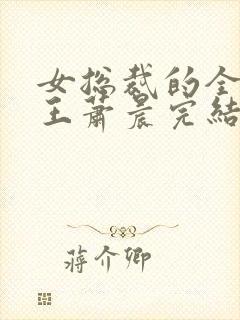 女总裁的全
王萧晨完结
蒋介卿